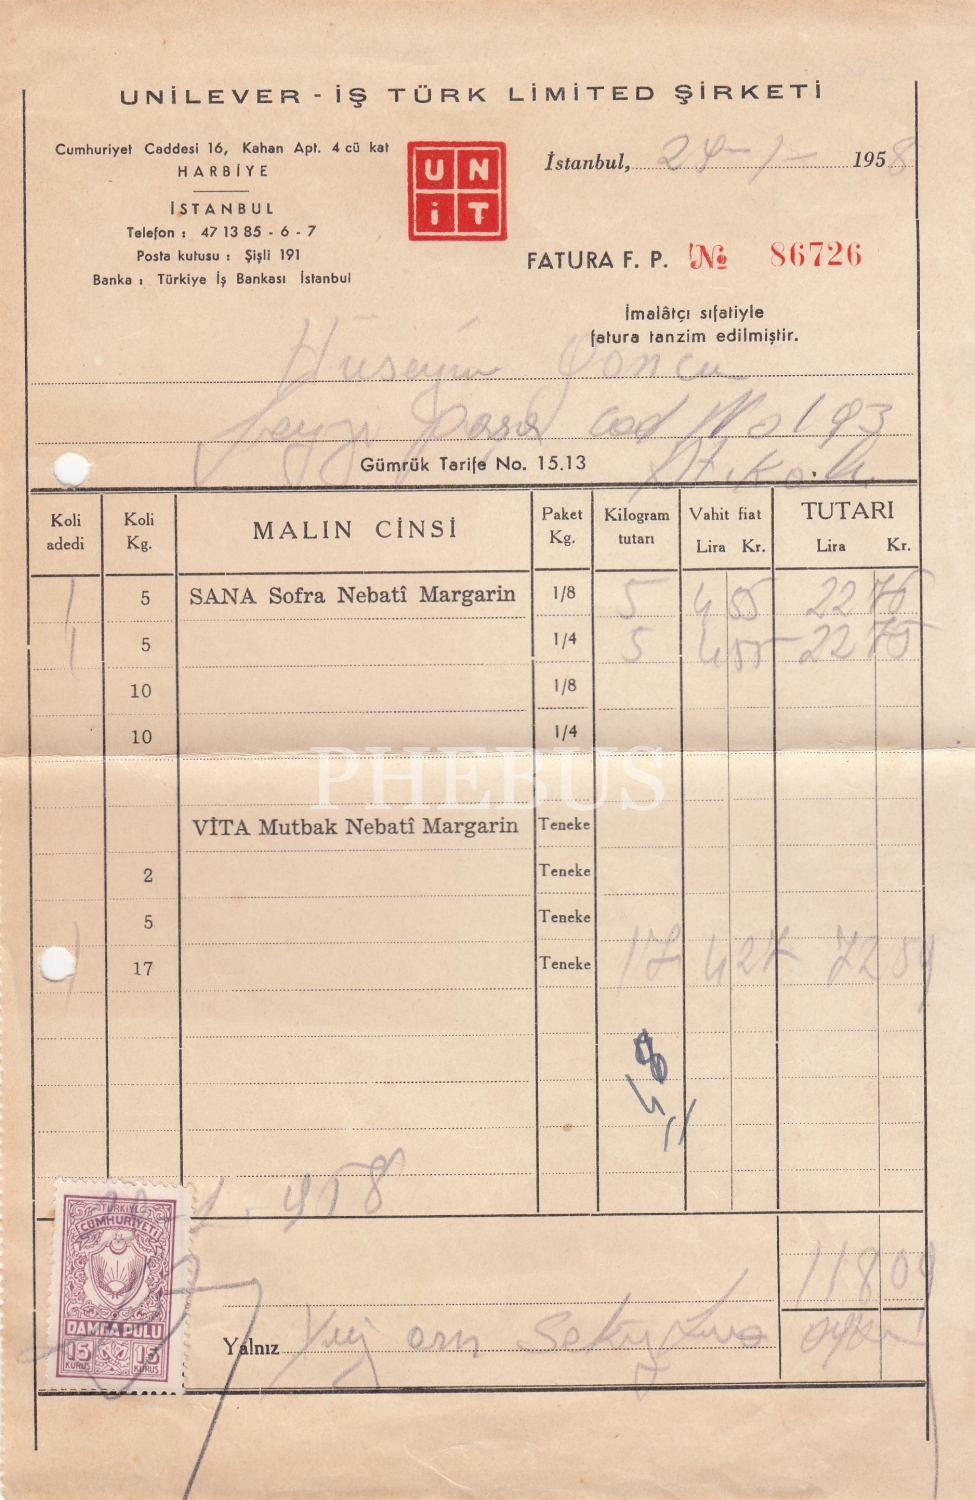 UNİLEVER - İŞ TÜRK LİMİTED ŞİRKETİ
Cumhuriyet Caddesi 16, Kahan Apt. 4 cü kat
HARBİYE
İSTANBUL
Telefon : 47 13 85 - 6 - 7
Posta kutusu : Şişli 191
Banka : Türkiye İş Bankası İstanbul
UN
İT
İstanbul, 24-1- 1958
FATURA F. P. № 86726
İmalâtçı sıfatiyle
fatura tanzim edilmiştir.
Hüseyin
Paşa cad No 193
Gümrük Tarife No. 15.13
Koli adedi Koli Kg. MALIN CİNSİ Paket Kg. Kilogram tutarı Vahit fiat Lira Kr. TUTARI Lira Kr.
1 5 SANA Sofra Nebatî Margarin 1/8 5 4 55 22 75
1 5 1/4 5 4 55 22 75
10 1/8
10 1/4
PHEBUS
VİTA Mutbak Nebatî Margarin Teneke
2 Teneke
5 Teneke
1 17 Teneke 17 4 27 72 59
958
TÜRKİYE
CUMHURİYETİ
DAMGA PULU
15 KURUŞ 15 KURUŞ
118 09
Yalnız Yüz on Sekiz Lira